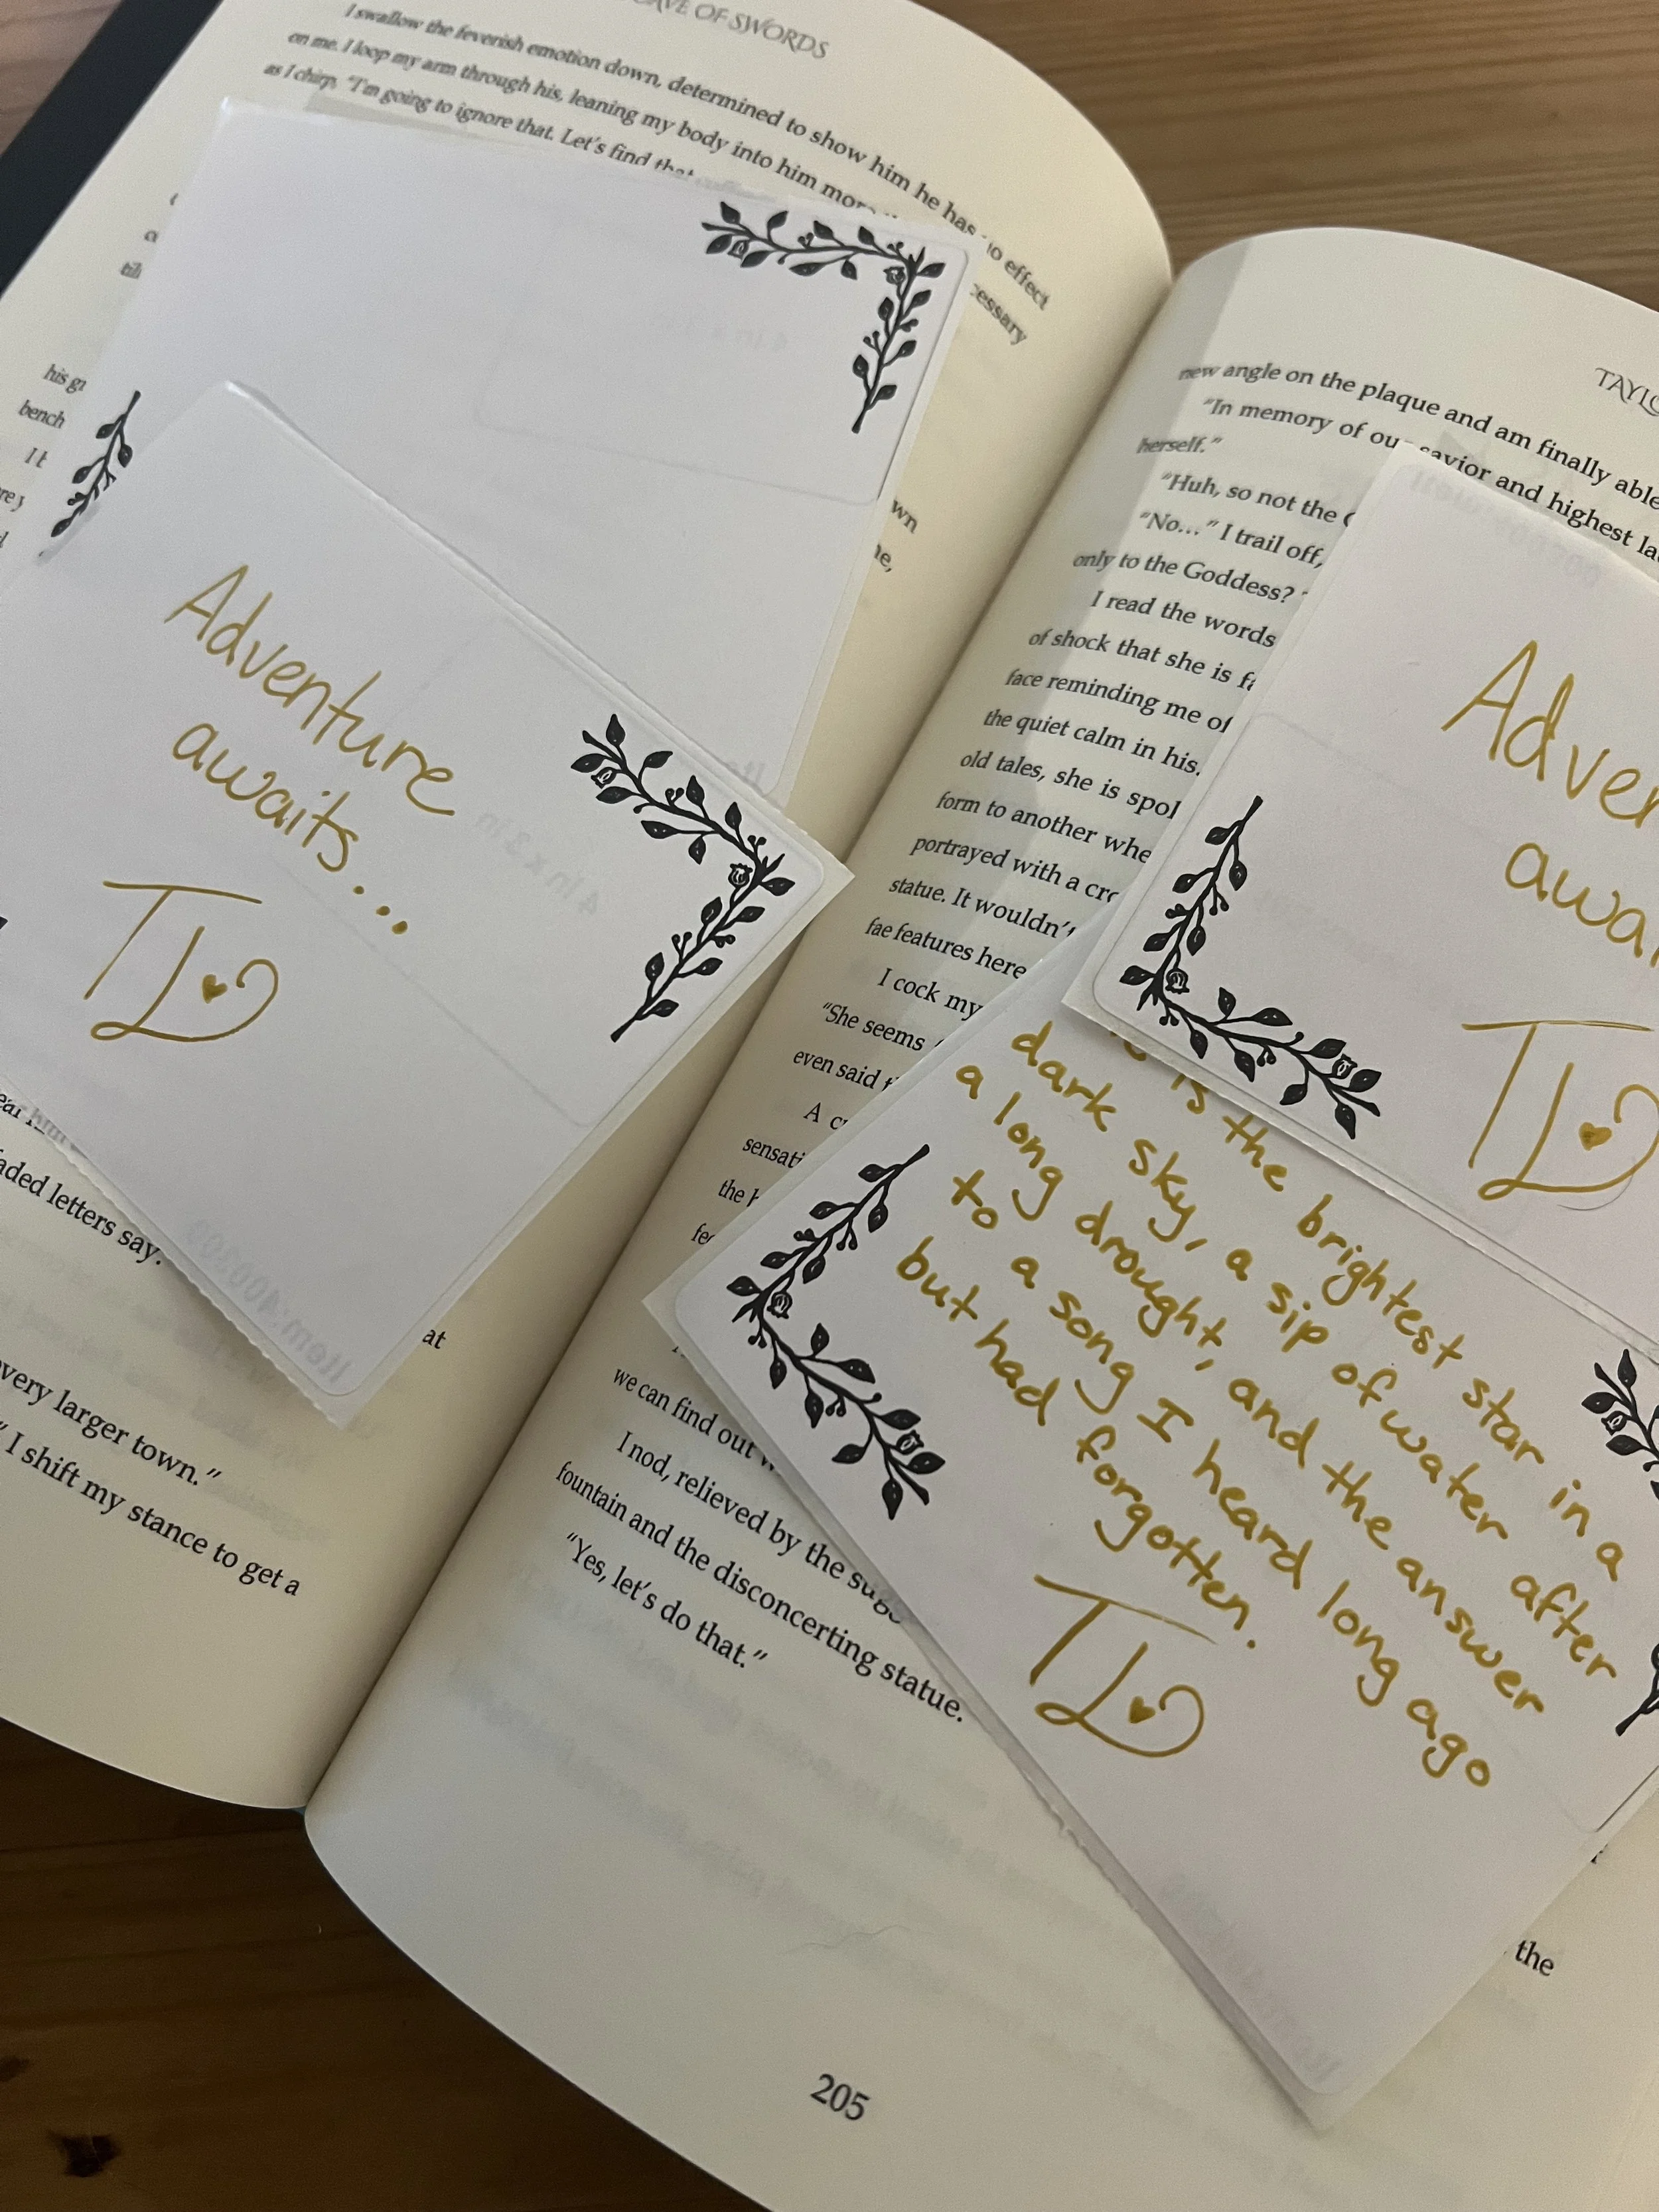 OF SWORDS
I swallow the feverish emotion down, determined to show him he has no effect
on me. I loop my arm through his, leaning my body into him more
as I chirp, “I’m going to ignore that. Let’s find that
cessary
his
bench
wn
Adventure
awaits...
TLD
4 in x 3 in
Item:
aded letters say:
at
very larger town.”
I shift my stance to get a
new angle on the plaque and am finally able
“In memory of our savior and highest
herself.”
“Huh, so not the
“No…” I trail off,
only to the Goddess?
I read the words
of shock that she is
face reminding me of
the quiet calm in his.
old tales, she is
form to another
portrayed with a
statue. It wouldn’t
fae features here
I cock my
“She seems
even said
A
the
we can find out
I nod, relieved by the
fountain and the disconcerting statue.
“Yes, let’s do that.”
the
205
awa
TLD
is the brightest star in a
dark sky, a sip of water after
a long drought, and the answer
to a song I heard long ago
but had forgotten.
TLD